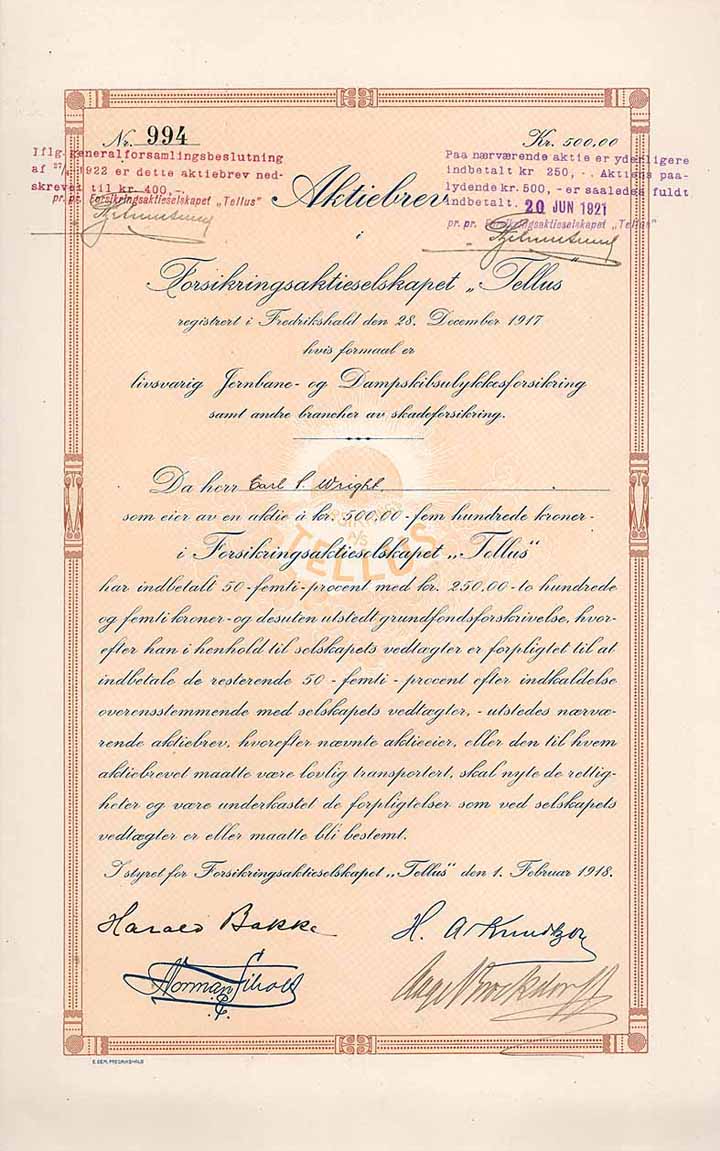 Nr. 994
Kr. 500,00
Iflg. generalforsamlingsbeslutning
af 27/ 1922 er dette aktiebrev ned-
skrevet til kr. 400,-.
pr. pr. Forsikringsaktieselskapet "Tellus"
Paa nærværende aktie er yderligere
indbetalt kr 250, -. Aktiens paa-
lydende kr. 500, - er saaledes fuldt
indbetalt. 20 JUN 1921
pr. pr. Forsikringsaktieselskapet "Tellus"
Aktiebrev
i
Forsikringsaktieselskapet „Tellus
registrert i Fredrikshald den 28. December 1917
hvis formaal er
livsvarig Jernbane- og Dampskibsulykkesforsikring
samt andre brancher av skadeforsikring.
Da herr Earl P. Wright.
som eier av en aktie à kr. 500,00 - fem hundrede kroner -
i Forsikringsaktieselskapet „Tellus"
A/S
TELLUS
har indbetalt 50 - femti - procent med kr. 250,00 - to hundrede
og femti kroner - og desuten utstedt grundfondsforskrivelse, hvor-
efter han i henhold til selskapets vedtægter er forpligtet til at
indbetale de resterende 50 - femti - procent efter indkaldelse
overensstemmende med selskapets vedtægter, - utstedes nærvæ-
rende aktiebrev, hvorefter nævnte aktieeier, eller den til hvem
aktiebrevet maatte være lovlig transportert, skal nyte de rettig-
heter og være underkastet de forpligtelser som ved selskapets
vedtægter er eller maatte bli bestemt.
I styret for Forsikringsaktieselskapet „Tellus" den 1. Februar 1918.
Harald Bakke
H. A. Knudtzon
E. SEM, FREDRIKSHALD